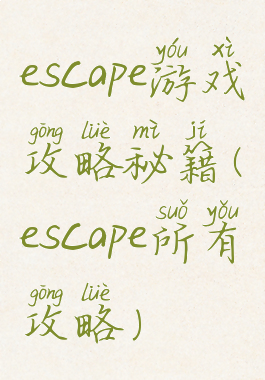 yóu xì
escape游戏
gōng lüè mì jí
攻略秘籍(
suǒ yǒu
escape所有
gōng lüè
攻略)